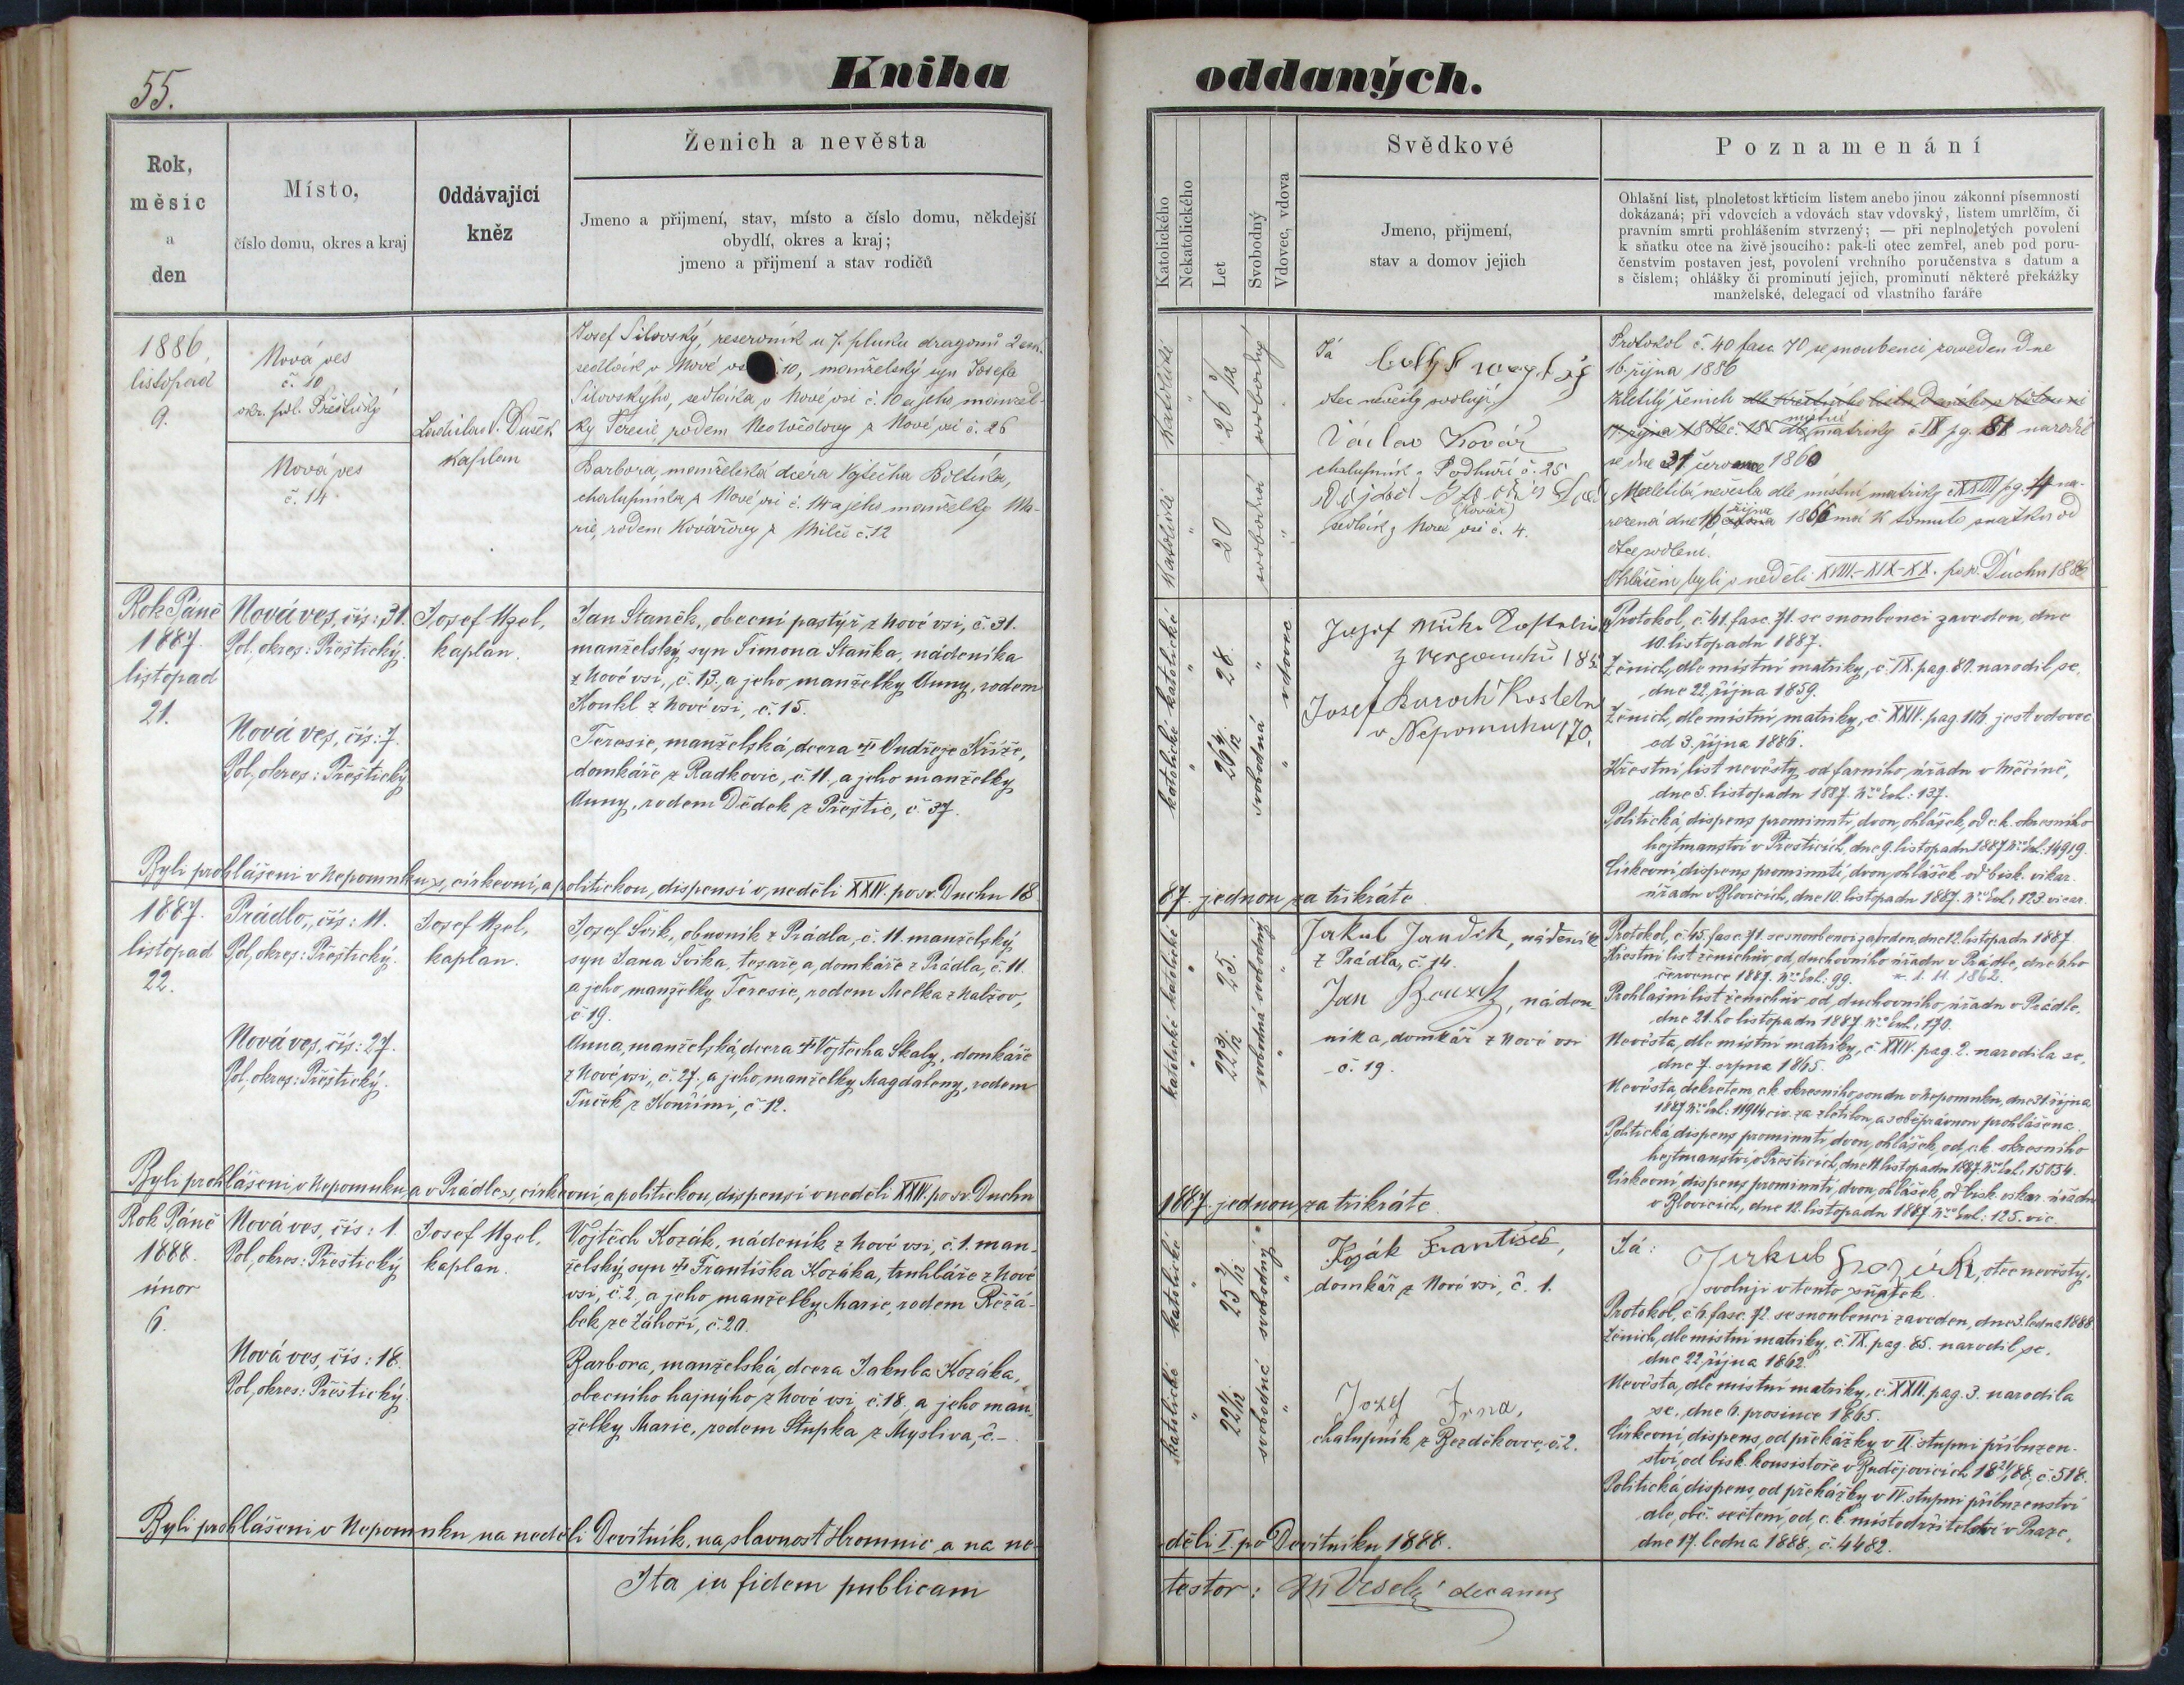 55.
Kniha oddaných.
Rok,
měsíc
a
den
Místo,
číslo domu, okres a kraj
Oddávající
kněz
Ženich a nevěsta
Jmeno a přijmení, stav, místo a číslo domu, někdejší
obydlí, okres a kraj;
jmeno a přijmení a stav rodičů
Katolického
Nekatolického
Let
Svobodný
Vdovec, vdova
Svědkové
Jmeno, přijmení,
stav a domov jejich
Poznamenání
Ohlašní list, plnoletost křticím listem anebo jinou zákonní písemností
dokázaná; při vdovcích a vdovách stav vdovský, listem umrlčím, či
pravním smrti prohlášením stvrzený; — při neplnoletých povolení
k sňatku otce na živě jsoucího: pak-li otec zemřel, aneb pod poru-
čenstvím postaven jest, povolení vrchního poručenstva s datum a
s číslem; ohlášky či prominutí jejich, prominutí některé překážky
manželské, delegací od vlastního faráře
1886
listopad
9.
Nová ves
č. 10
okr. pol. Přeštický
Nová ves
č. 14
Ladislav V. Dušek
kaplan
Josef Silovský, reservník u 7. pluku dragonů 2 esk.
sedlák v Nové vsi č. 10, manželský syn Josefa
Silovského, sedláka v Nové vsi č. 10 a jeho manžel-
ky Teresie, rodem z Nové vsi č. 26
Barbora, manželská dcera Vojtěcha
chalupníka z Nové vsi č. 14 a jeho manželky Ma-
rie, rodem Kovářovy z Milče č. 12
katolické
"
26 2/12
svobodný
katolické
"
20
svobodná
"
Já
otec nevěsty svoluji
Václav Kovář
chalupník z Podhuří č. 25
(Kovář)
sedlák z Nové vsi č. 4.
Protokol č. 40 fasc. 70 se snoubenci zaveden dne
16. října 1886
Zletilý ženich
místní matriky č. IX pg. 81 narodil
se dne 31 července 1860
Nezletilá nevěsta dle místní matriky č. XXIII pg. 74 na-
rozená dne 16 října 1866 má k tomuto sňatku od
otce svolení.
Ohlášeni byli v neděli XVIII.-XIX-XX. po sv. Duchu 1886
Rok Páně
1887.
listopad
21.
Nová ves, čís: 31.
Pol. okres: Přeštický.
Nová ves, čís: 7.
Pol. okres: Přeštický
Josef Uzel,
kaplan.
Jan Staněk, obecní pastýř z Nové vsi, č. 31.
manželský syn Šimona Staňka, nádeníka
z Nové vsi, č. 13, a jeho manželky Anny, rodem
Kouhl z Nové vsi, č. 15.
Teresie, manželská dcera † Ondřeje Kříže,
domkáře z Radkovic, č. 11. a jeho manželky
Anny, rodem Dědek z Přeštic, č. 37.
katolické
"
28.
"
vdovec
katolické
"
26 4/12
svobodná
"
Josef
z 182
Josef Buroch Kosteln
v Nepomuku 170.
Protokol, č. 41. fasc. 71. se snoubenci zaveden, dne
10. listopadu 1887.
Ženich, dle místní matriky, č. IX. pag. 80. narodil se,
dne 22. října 1859.
Ženich, dle místní, matriky, č. XXIV. pag. 116. jest vdovec
od 3. října 1886.
Křestní list nevěsty od farního úřadu v Měčíně,
dne 5. listopadu 1887. Nro Exh.: 137.
Politická dispens prominutí dvou ohlášek, od c. k. okresního
hejtmanství v Přešticích, dne 9. listopadu 1887 Nro Exh.: 14919.
Církevní dispens prominutí dvou ohlášek od bisk. vikar.
úřadu v Blovicích, dne 10. listopadu 1887. Nro Exh.: 123. vicar.
Byli prohlášeni v Nepomuku s církevní a politickou dispensí v neděli XXIV. po sv. Duchu 18
87. jednou za třikráte
1887.
listopad
22.
Prádlo, čís: 11.
Pol. okres: Přeštický.
Nová ves, čís: 27.
Pol. okres: Přeštický.
Josef Uzel,
kaplan.
Josef Švik, obuvník z Prádla, č. 11. manželský
syn Jana Švika, tesaře, a domkáře z Prádla, č. 11.
a jeho manželky Teresie, rodem Melka z Nalžov,
č 19.
Anna, manželská dcera † Vojtěcha Skaly, domkáře
z Nové vsi, č. 27. a jeho manželky Magdaleny, rodem
Tuček z Kouřimi, č 12.
katolické
"
25.
svobodný
"
katolické
"
22 3/12
svobodná
"
Jakub Jandík, nádeník
z Prádla, č. 14.
Jan, náden-
ník a domkář z Nové vsi
č. 19.
Protokol, č. 45. fasc. 71. se snoubenci zaveden, dne 12. listopadu 1887.
Křestní list ženichův od duchovního úřadu v Prádle, dne 6. ho
července 1887. Nro Exh.: 99. 1. 11. 1862.
Prohlašní list ženichův od duchovního úřadu v Prádle,
dne 21. ho listopadu 1887. Nro Exh.: 170.
Nevěsta, dle místní matriky, č XXIV. pag. 2. narodila se,
dne 7. srpna 1865.
Nevěsta, dekretem c. k. okresního soudu v Nepomuku, dne 31. října
1887 Nro Exh.: 11914 civ. za zletilou a svéprávnou prohlášena.
Politická dispens prominutí dvou ohlášek, od c. k. okresního
hejtmanství v Přešticích, dne 11. listopadu 1887. Nro Exh. 15034.
Církevní dispens prominutí dvou ohlášek, od bisk. vikar. úřadu
v Blovicích, dne 12. listopadu 1887. Nro Exh.: 125. vic.
Byli prohlášeni v Nepomuku, a v Prádle s církevní a politickou dispensí v neděli XXIV. po sv. Duchu
1887. jednou za třikráte.
Rok Páně
1888.
únor
6.
Nová ves, čís: 1.
Pol. okres: Přeštický
Nová ves, čís: 18.
Pol. okres: Přeštický.
Josef Uzel,
kaplan.
Vojtěch Kozák, nádeník z Nové vsi, č. 1. man-
želský syn † Františka Kozáka, truhláře z Nové
vsi, č. 2, a jeho manželky Marie, rodem Řežá-
bek ze Záhoří, č. 20.
Barbora, manželská dcera Jakuba Kozáka,
obecního hajného z Nové vsi, č. 18, a jeho man-
želky Marie, rodem Stupka z Mysliva, č.-
katolické
"
25 3/12
svobodný
"
katolické
"
22 1/12
svobodné
"
Kozák František,
domkář z Nové vsi, č. 1.
Jozef Irna,
chalupník z Bezděkovce, č. 2.
Já:
Jakub Kozák, otec nevěsty,
svoluji v tento sňatek.
Protokol, č. 6. fasc. 72. se snoubenci zaveden, dne 3. ledna 1888
Ženich, dle místní matriky, č. IX. pag. 85. narodil se,
dne 22. října 1862.
Nevěsta, dle místní matriky, č. XXII. pag. 3. narodila
se, dne 6. prosince 1865.
Církevní dispens, od překážky v II. stupni příbuzen-
ství, od bisk. konsistoře v Budějovicích 18 24/1 88, č. 518.
Politická dispens, od překážky v IV. stupni příbuzenství
dle obč. sečtení, od c. k. místodržitelství v Praze,
dne 17. ledna 1888, č. 4482.
Byli prohlášeni v Nepomuku na neděli Devítník, na slavnost Hromnic a na ne-
děli I. po Devítníku 1888.
Ita in fidem publicam
testor: Veselý decanus